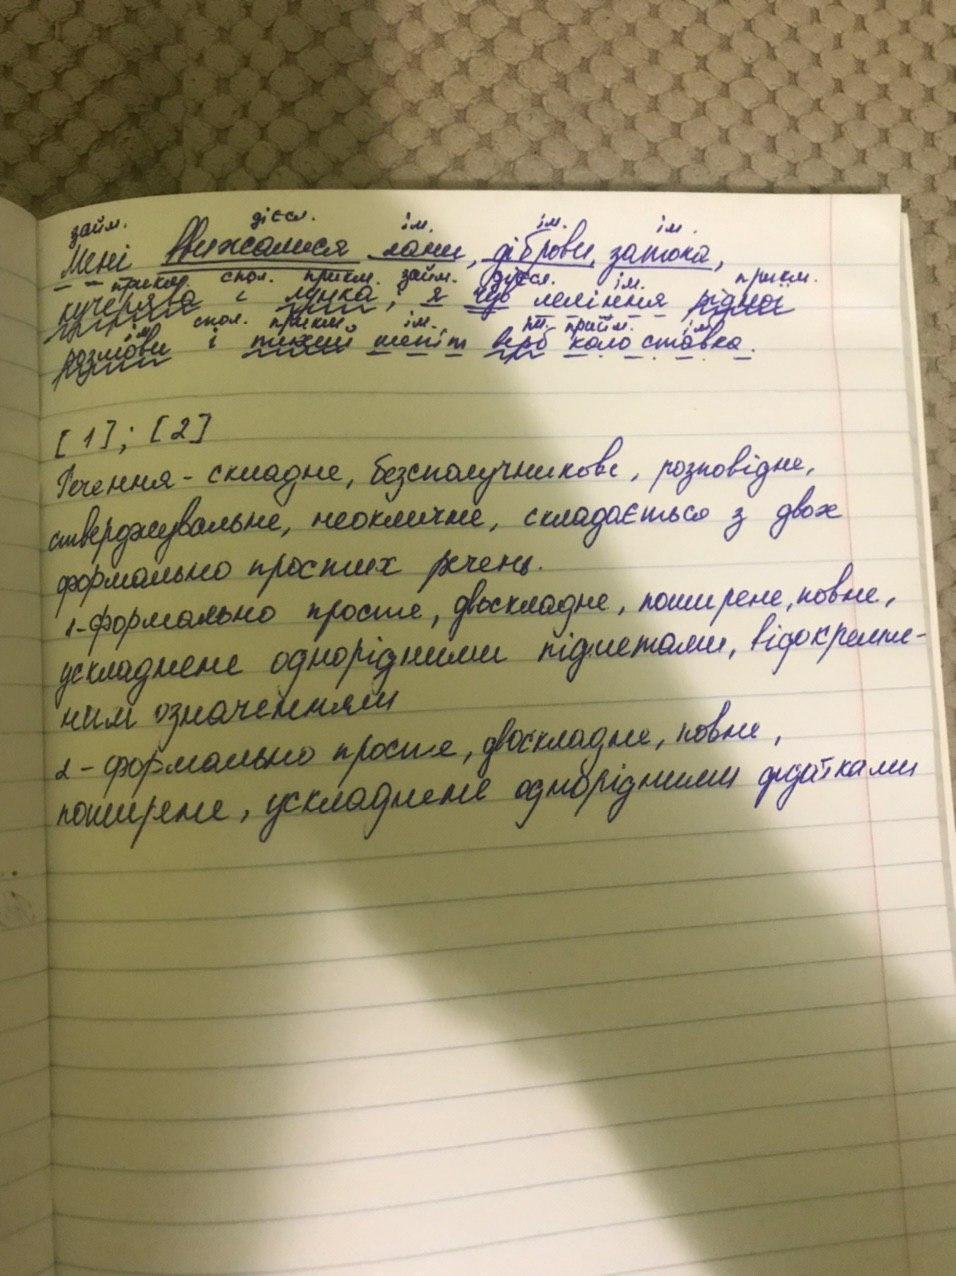 займ. дієсл. ім. ім. ім.
Мені ввижалися лани, діброви, затока,
прикм. спол. прикм. займ. дієсл. ім. прикм.
кучерява і лунка, я чув лелініння рідної
ім. спол. прикм. ім. ім. прийм. ім.
розмови і тихий шепіт верб коло ставка.
[1]; [2]
Речення - складне, безсполучникове, розповідне,
стверджувальне, неокличне, складається з двох
формально простих речень.
1-формально просте, двоскладне, поширене, повне,
ускладнене однорідними підметами, відокремле-
ним означенням
2 - формально просте, двоскладне, повне,
поширене, ускладнене однорідними додатками